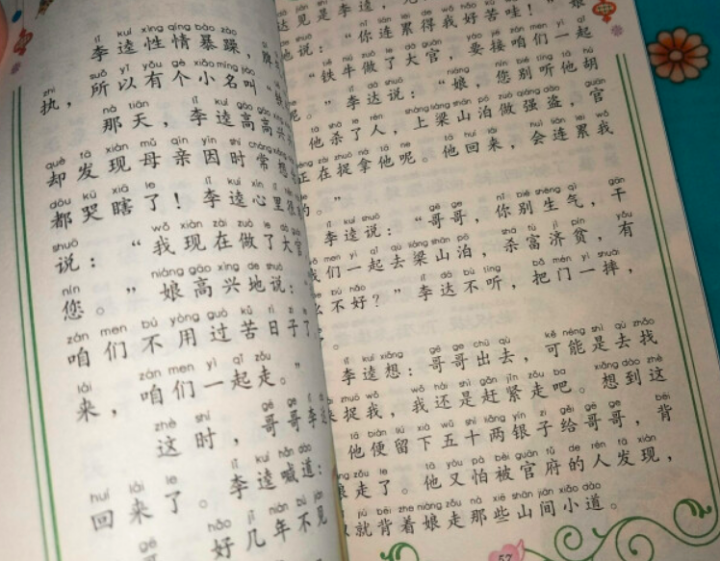 李逵性情暴躁，脾
执，所以有个小名叫“铁
那天，李逵高高兴
却发现母亲因时常想
都哭瞎了！李逵心里很
说：“我现在做了大官
您。”娘高兴地说：“
咱们不用过苦日子了
来，咱们一起走。”
这时，哥哥李达
回来了。李逵喊道：
好几年不见
达见是李逵，
他说：“你连累得我好苦哇！”娘
“铁牛做了大官，要接咱们一起
。”李达说：“娘，您别听他胡
他杀了人，上梁山泊做强盗，官
正在捉拿他呢。他回来，会连累我
的。”
李逵说：“哥哥，你别生气，干
我们一起去梁山泊，杀富济贫，有
么不好？”李达不听，把门一摔，
李逵想：哥哥出去，可能是去找
来捉我，我还是赶紧走吧。想到这
他便留下五十两银子给哥哥，背
娘走了。他又怕被官府的人发现，
就背着娘走那些山间小道。
57